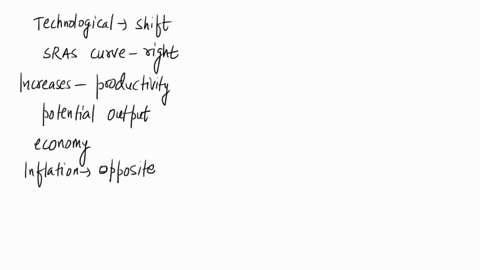 Technological → shift
SRAS curve - right
Increases - productivity
potential output
economy
Inflation → opposite